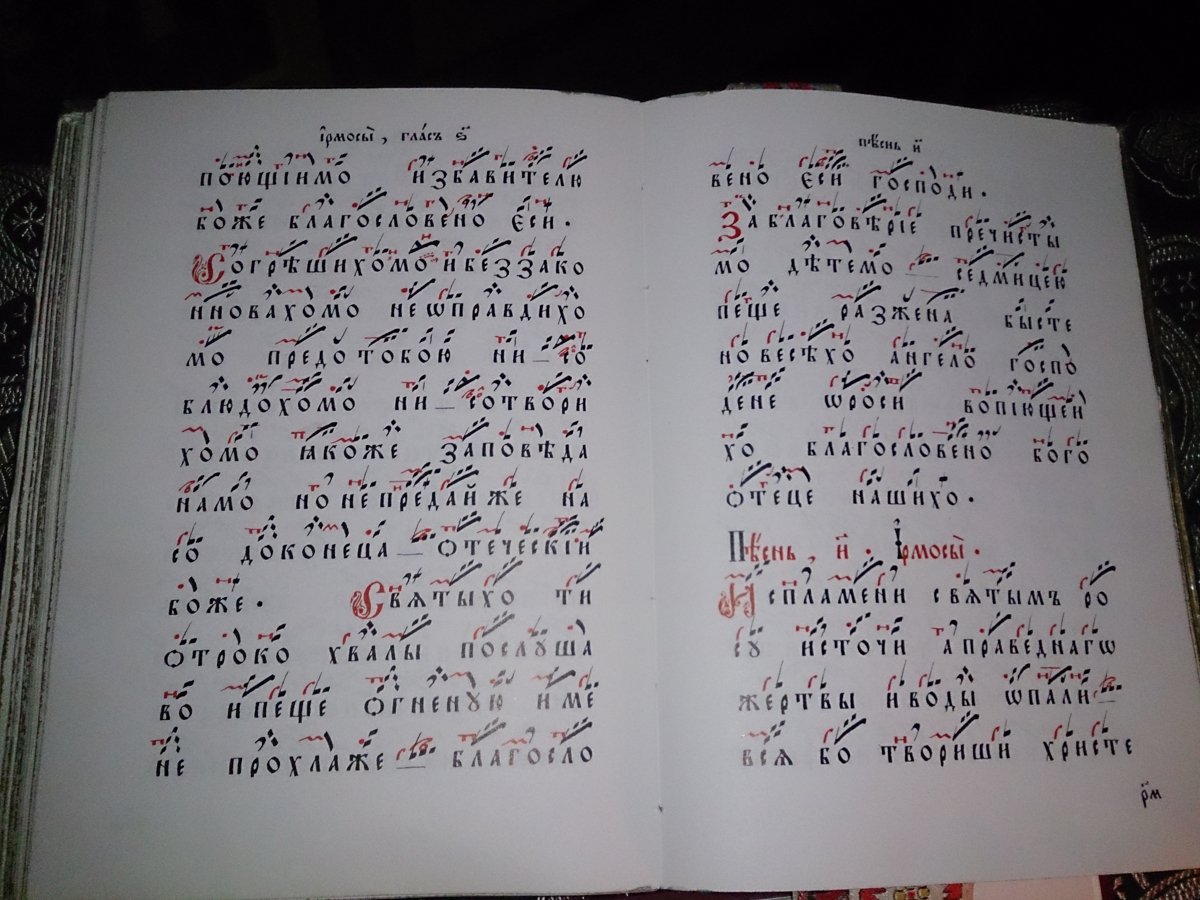 і҆рмосы̀, гла́съ ѕ҃
поющіимо избавителю
боже благословено єси.
Согрѣшихомо и беззако
нновахомо неѡправдихо
мо предо тобою ни со
блюдохомо ни сотвори
хомо ꙗкоже заповѣда
намо но непредай же на
со доконеца отеческїи
боже. Святыхо ти
отроко хвалы послуша
во ипеще огненую име
не прохлаже благосло
пѣснь и҃
вено єси господи.
За благовѣріе пречисты
мо дѣтемо седмицею
пеще разжена бысте
но весѣхо ангело госпо
дене ѡроси вопіющеи
хо благословено бого
отеце нашихо.
Пѣснь, и҃. І҆рмосы̀.
Испламени святымъ ро
су источи а праведнагѡ
жертвы и воды ѡпали
вся бо твориши христе
р҃м